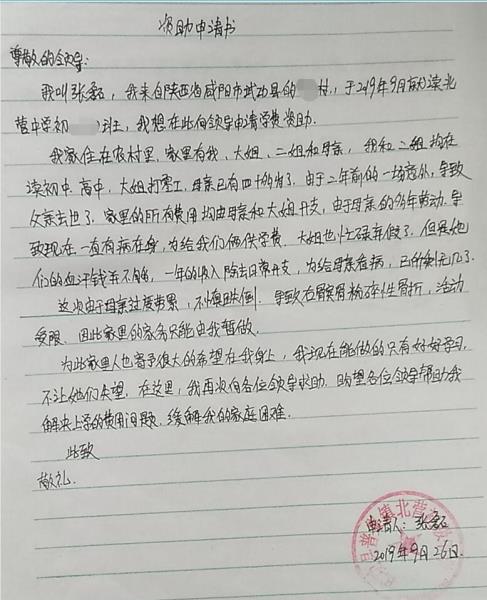 资助申请书
尊敬的领导:
我叫张磊,我来自陕西省咸阳市武功县的 村,于2019年9月前就读北
营中学初 班,我想在此向领导申请学费资助.
我家住在农村里,家里有我、大姐、二姐和母亲,我和二姐均在
读初中、高中,大姐打零工,母亲已有四十的了.由于二年前的一场意外,导致
父亲去世了.家里的所有费用均由母亲和大姐开支,由于母亲的多年劳动.导
致现在一直有病在身,为给我们俩供学费.大姐也忙碌的 但是她
们的血汗钱杀不够,一年的收入除去日常开支,为给母亲看病,已所剩无几了.
这次由于母亲过度劳累,不慎跌倒.导致右髌骨粉碎性骨折,活动
受限.因此家里的家务只能由我暂做.
为此家里人也寄予很大的希望在我身上,我现在能做的只有好好学习,
不让她们失望,在这里,我再次向各位领导求助.盼望各位领导帮助我
解决上学的费用问题.缓解我的家庭困难.
此致
敬礼.
申请人:张磊
2019年9月26日.